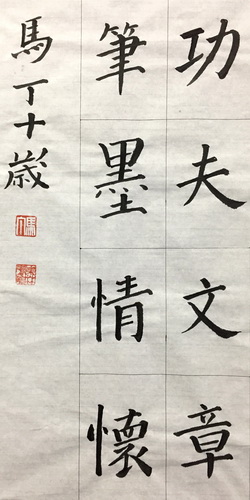 功夫文章
筆墨情懷
馬丁十歲